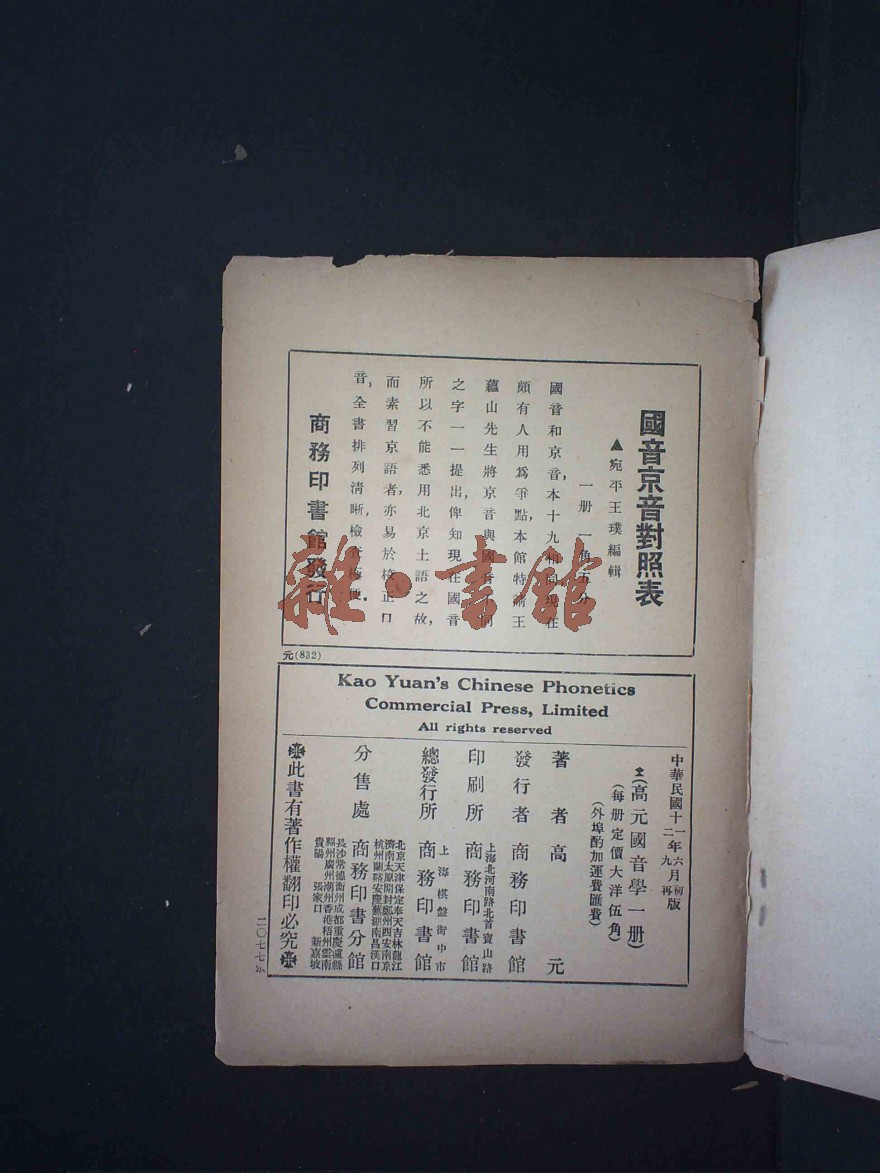 國音京音對照表
▲宛平王璞編輯
一册 一角五分
國音和京音,本十九相同,現在
頗有人用爲爭點,本館特請王
蘊山先生將京音與國音不同
之字一一提出,俾知現在國音
所以不能悉用北京土語之故,
而素習京語者,亦易於校正口
音,全書排列清晰,檢查極便.
商務印書館發行
雜·書館
元(832)
Kao Yuan's Chinese Phonetics
Commercial Press, Limited
All rights reserved
中華民國十一年六月初版
二九再
(高元國音學一册)
(每册定價大洋伍角)
(外埠酌加運費匯費)
著者 高元
發行者 商務印書館
印刷所 上海北河南路北首寶山路 商務印書館
總發行所 上海棋盤街中市 商務印書館
分售處 商務印書分館
北京天津保定奉天吉林龍江
濟南太原開封鄭州西安南京
杭州蘭谿安慶蕪湖南昌漢口
長沙常德衡州成都重慶瀘縣
福州廣州潮州香港梧州雲南
貴陽 張家口 新嘉坡
※此書有著作權翻印必究※
二〇七七